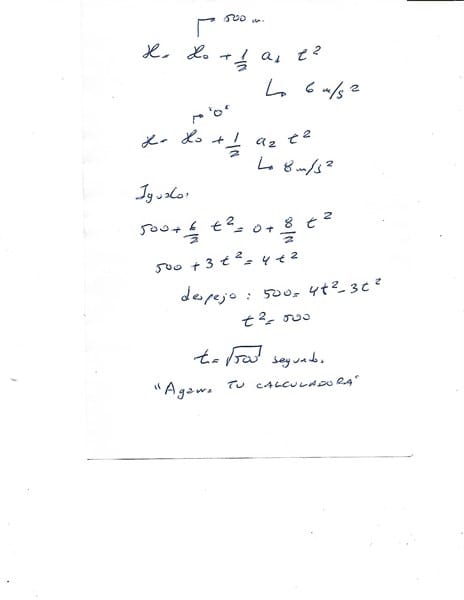 500 m.
x = x₀ + 1/2 a₁ t²
6 m/s²
"0"
x = x₀ + 1/2 a₂ t²
8 m/s²
Igualo.
500 + 6/2 t² = 0 + 8/2 t²
500 + 3 t² = 4 t²
despejo : 500 = 4t² - 3t²
t² = 500
t = √500 segundo.
TU CALCULADORA"